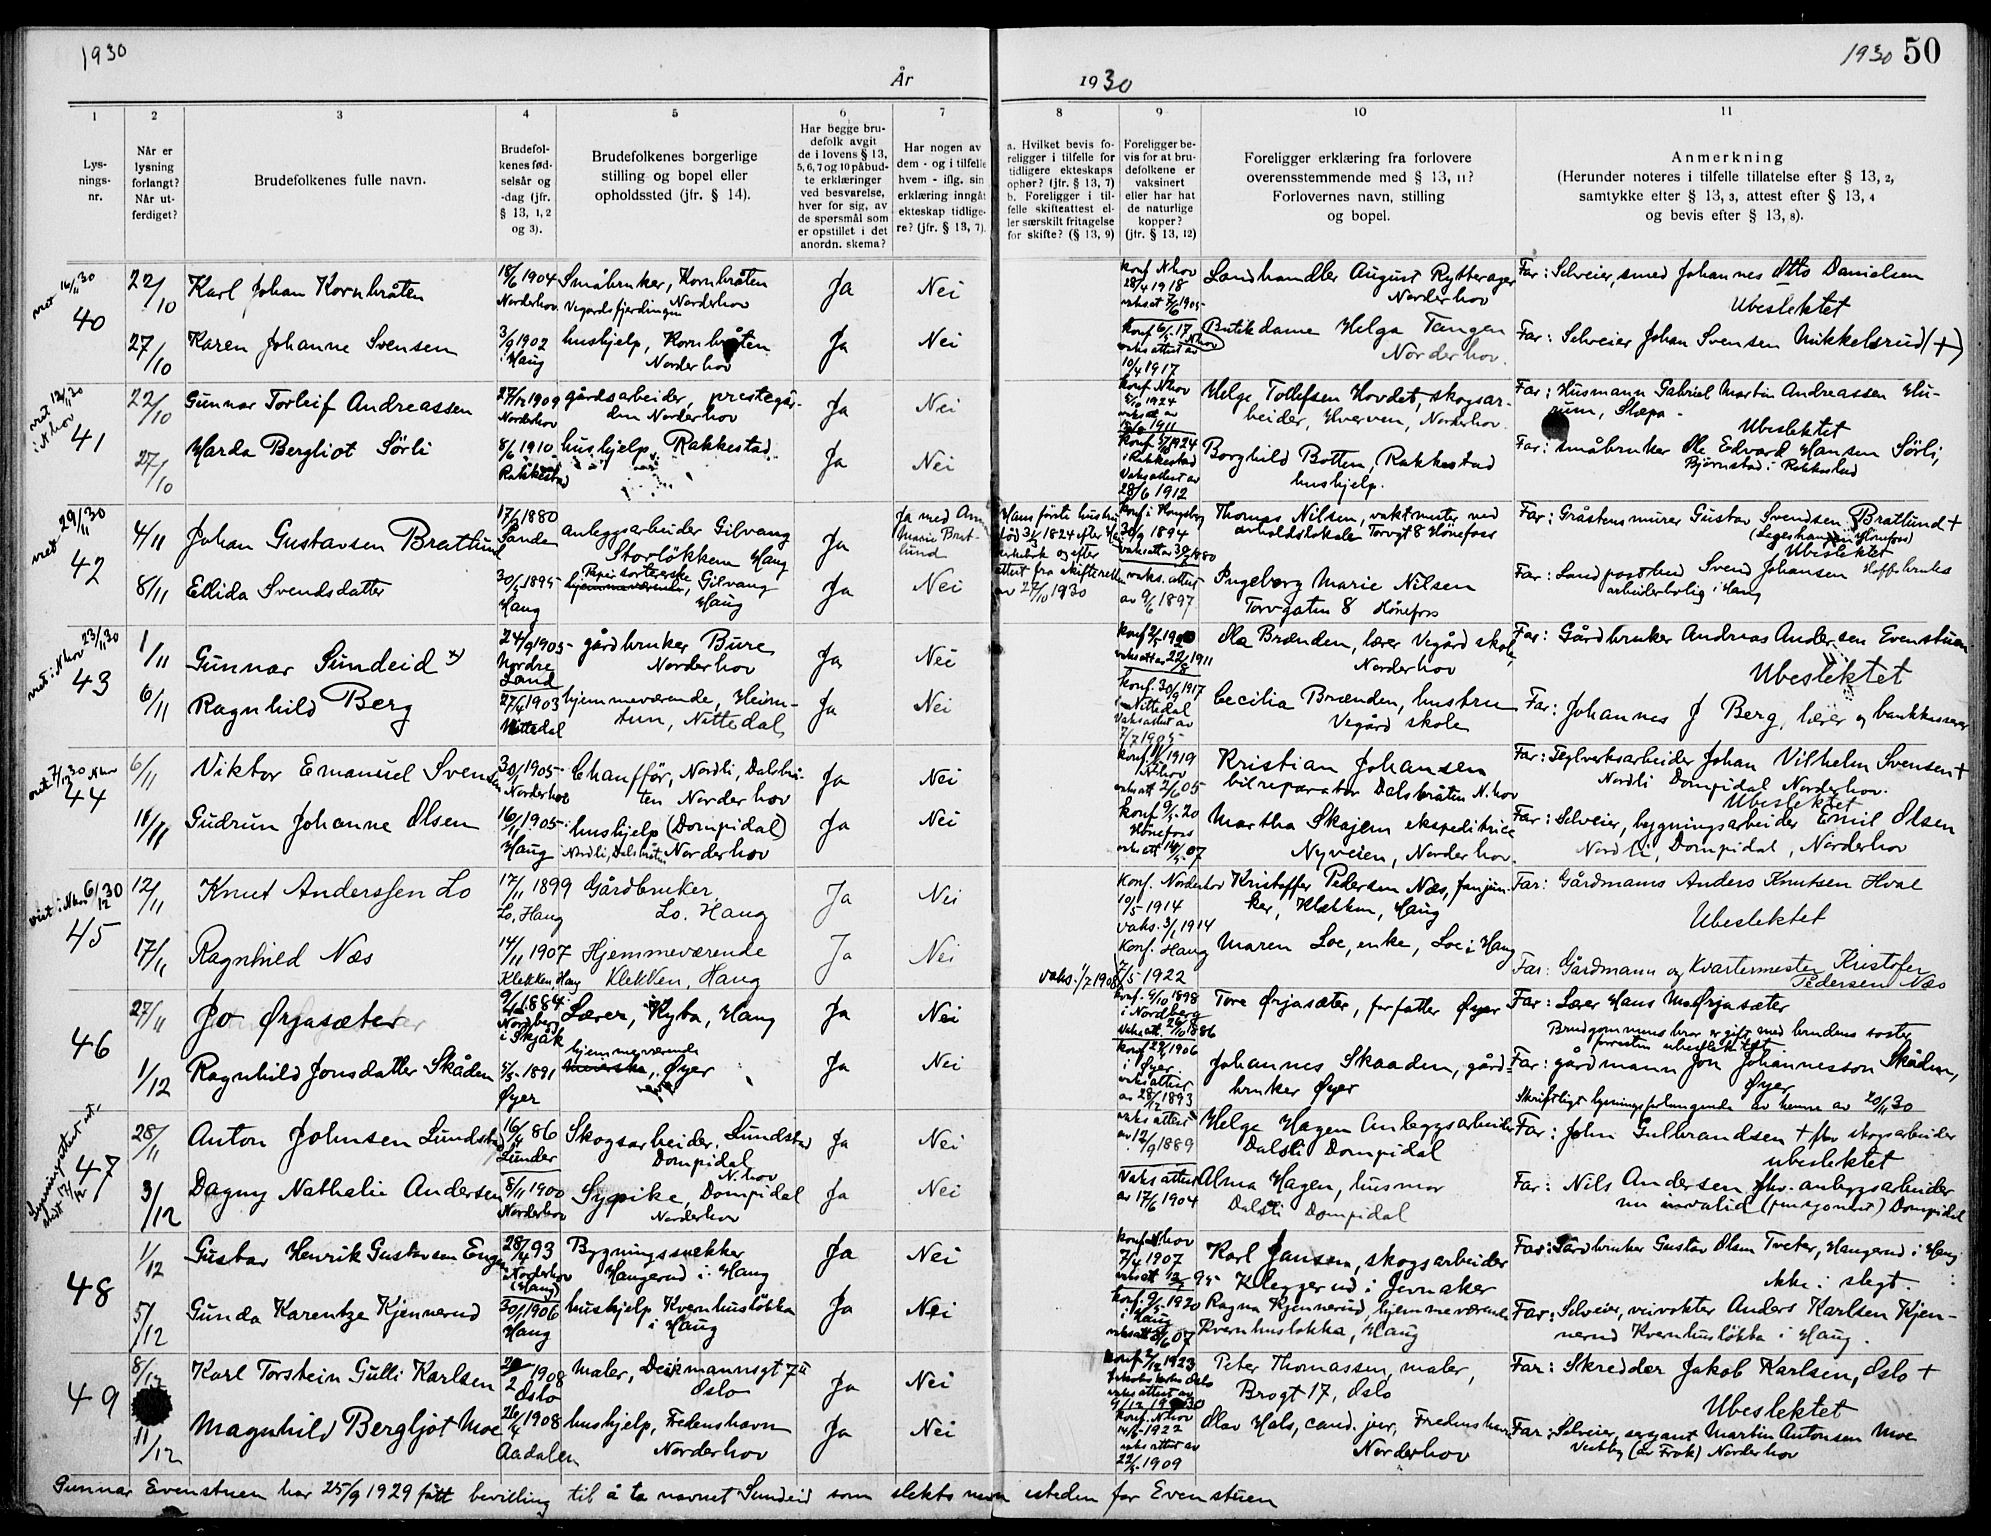 1930
År
1930
1930 50
1
2
3
4
5
6
7
8
9
10
11
Lys-
nings-
nr.
Når er
lysning
forlangt?
Når ut-
ferdiget?
Brudefolkenes fulle navn.
Brudefol-
kenes fød-
selsår og
-dag (jfr.
§ 13, 1, 2
og 3).
Brudefolkenes borgerlige
stilling og bopel eller
opholdssted (jfr. § 14).
Har begge bru-
defolk avgit
de i lovens § 13,
5, 6, 7 og 10 påbud-
te erklæringer
ved besvarelse,
hver for sig, av
de spørsmål som
er opstillet i det
anordn. skema?
Har nogen av
dem - og i tilfelle
hvem - iflg. sin
erklæring inngåt
ekteskap tidlige-
re? (jfr. § 13, 7).
a. Hvilket bevis fo-
religger i tilfelle for
tidligere ekteskaps
ophør? (jfr. § 13, 7)
b. Foreligger i til-
felle skifteattest el-
ler særskilt fritagelse
for skifte? (§ 13, 9)
Foreligger be-
vis for at bru-
defolkene er
vaksinert
eller har hat
de naturlige
kopper?
(jfr. § 13, 12)
Foreligger erklæring fra forlovere
overensstemmende med § 13, 11?
Forlovernes navn, stilling
og bopel.
Anmerkning
(Herunder noteres i tilfelle tillatelse efter § 13, 2,
samtykke efter § 13, 3, attest efter § 13, 4
og bevis efter § 13, 8).
viet 16/11 30
40
22/10
Karl Johan Kornbråten
18/6 1904
Norderhov
Småbruker, Kornbråten
Vegardsfjerdingen Norderhov
Ja
Nei
konf. N.hov
28/4 1918
vaksat 7/6 1905
Landhandler August Rytterager
Norderhov
Far: Selveier, smed Johannes Otto Danielsen
Ubeslektet
27/10
Karen Johanne Svensen
3/9 1902
Haug
hushjelp, Kornbråten
Norderhov
Ja
Nei
konf 6/5 17 N.hov
vaksattest av
10/4 1917
Butikdame Helga Tangen
Norderhov.
Far: Selveier Johan Svensen Mikkelsrud (+)
i N.hov
41
22/10
Gunnar Torleif Andreassen
27/12 1909
Norderhov
gårdsarbeider, prestegår-
den Norderhov
Ja
Nei
konf. N.hov
5/10 1924
1911
Helge Tollefsen Hovdet, skogsar-
beider, Hverven, Norderhov.
Far: Husmann Gabriel Martin Andreassen Hu-
rum, Slepa -
Ubeslektet
27/10
Harda Bergliot Sörli
8/6 1910
Rakkestad
hushjelp Rakkestad.
Ja
Nei
i Rakkestad
Vaksattest av
28/6 1912
Borghild Botten, Rakkestad
hushjelp.
Far: småbruker Ole Edvard Hansen Sörli,
Bjørnstad i Rakkestad
viet 29/11 30
42
4/11
Johan Gustavsen Bratlund
17/5 1880
Sande
anleggsarbeider Gilvang
Storløkken Haug
Ja
Ja med Anna
Marie Brat-
lund
Hans første hustru
død 3/3 1824 efter
kirkebok og efter
attest fra skifteretten
av 27/10 1930
konf. i Kongsberg
30/9 1894
vaksattest 30/7 1880
Thomas Nilsen, vaktmester ved
avholdslokale Torvgt 8 Hönefoss
Far: Gråstensmurer Gustav Svendsen Bratlund +
Ubeslektet
8/11
Ellida Svendsdatter
30/5 1895
Haug
Papirsorterske
hjemmeværende, Gilvang
Haug
Ja
Nei
vaks. attest
av 9/6 1897
Ingeborg Marie Nilsen
Torvgaten 8 Hönefoss
Far: Landpostbud Svend Johansen Hoffsbruks
arbeiderbolig i Haug
viet i N.hov 23/11 30
43
1/11
Gunnar Sundeid x)
24/9 1905
Nordre
Land
gårdbruker Bure
Norderhov
Ja
Nei
vaksat av 22/8 1911
Ola Brænden, lærer Vegård skole,
Norderhov
Far: Gårdbruker Andreas Andersen Evenstuen
Ubeslektet
6/11
Ragnhild Berg
27/4 1903
Nittedal
hjemmeværende, Heim-
tun, Nittedal
Ja
Nei
konf. 30/9 1917
i Nittedal
Vaksattest av
7/7 1905
Cecilia Brænden, hustru
Vegård skole
Far: Johannes J Berg, lærer og bankkasserer
viet 7/12 30 N.hov
44
6/11
Viktor Emanuel Svensen
30/1 1905
Norderhov
Chauffør, Nordli, Dalsbrå-
ten Norderhov
Ja
Nei
konf. 11/5 1919
N.hov
vaksatt 2/6 05
Kristian Johansen
bilreparatør Dalsbråten N.hov
Far: Teglverksarbeider Johan Vilhelm Svensen +
Nordli Dompidal Norderhov.
Ubeslektet
11/11
Gudrun Johanne Olsen
16/11 1905
Haug
hushjelp (Dompidal)
Nordli, Dalsbråten Norderhov
Ja
Nei
konf 9/5 20
Hönefoss
vaksatt 14/5 07
Martha Skajem ekspeditrice
Nyveien, Norderhov.
Far: Selveier, bygningsarbeider Emil Olsen
Nordli, Dompidal, Norderhov
viet i N.hov 6/12 30
45
12/11
Knut Anderssen Lo
17/11 1899
Lo, Haug
Gårdbruker
Lo, Haug
Ja
Nei
Konf. Norderhov
10/5 1914
Vaks. 3/1 1914
Kristoffer Pedersen Næs, fanejun-
ker, Klekken, Haug
Far: Gårdmanns Anders Knutsen Hval
Ubeslektet
17/11
Ragnhild Næs
14/11 1907
Klekken, Haug
Hjemmeværende
Klekken, Haug
Ja
Nei
vaks. 1/7 1908
Konf. Haug
7/5 1922
Maren Loe, enke, Loe i Haug
Far: Gårdmann og Kvartermester Kristofer
Pedersen Næs
46
27/11
Jo Ørjasæter
9/4 1884
Nordberg
i Skjåk
Lærer, Hyba, Haug
Ja
Nei
konf. 9/10 1898
i Nordberg
Vaksatt. 26/10 1886
Tore Ørjasæter, forfatter Øyer
Far: Lærer Hans M Ørjasæter
Brudgommens bror er gift med brudens søster
forresten ubeslektet
1/12
Ragnhild Jonsdatter Skåden
5/5 1891
Øyer
hjemmeværende
Øyer
Ja
Nei
1906
i Øyer
vaksattest
av 28/12 1893
Johannes Skaaden, gård-
bruker Øyer
Far: gårdmann Jon Johannesson Skåden,
Øyer
Skriftligt lysningsforlangende av henne av 20/11 30
Lysningsattest ut-
stedt 17/12
47
28/11
Anton Johnsen Lundstad
16/4 86
Lunder
Skogsarbeider, Lundstad
Dompidal
N.hov
Ja
Nei
vaks attest
av 12/9 1889
Helge Hagen Anleggsarbeider
Dalsli Dompidal
Far: John Gulbrandsen + fhv skogsarbeider
ubeslektet
3/12
Dagny Nathalie Andersen
8/11 1900
Norderhov
Sypike, Dompidal
Norderhov
Ja
Nei
Vaks attest
av 17/6 1904
Alma Hagen, husmor
Dalsli Dompidal
Far: Nils Andersen fhv. anleggsarbeider
nu invalid (pensjonert) Dompidal
48
1/12
Gustav Henrik Gustavsen Engen
28/4 93
Norderhov
(Haug)
Bygningssnekker
Haugerud i Haug
Ja
Nei
konf. N.hov
7/4 1907
Karl Jansen, skogsarbeider
Kleggerud i Jevnaker
Far: Gårdbruker Gustav Olsen Tveter, Haugerud i Haug
ikke i slegt.
5/12
Gunda Karentze Kjennerud
30/1 1906
Haug
hushjelp Kvernhusløkka
i Haug
Ja
Nei
konf. 9/5 1920
i Haug
vaksatt 8/6 07
Ragna Kjennerud, hjemmeværende
Kvernhusløkka, Haug
Far: Selveier, veivokter Anders Karlsen Kjen-
nerud Kvernhusløkka i Haug.
49
8/12
Karl Torstein Gulli Karlsen
1908
Oslo
Maler, Deikmannsgt 7 II
Oslo
Ja
Nei
konf 2/12 1923
Jakobs kirke Oslo
vaksattest av
Peter Thomassen, maler,
Brogt 17, Oslo
Far: Skredder Jakob Karlsen, Oslo +
Ubeslektet
11/12
Magnhild Bergljot Moe
26/4 1908
Aadalen
hushjelp, Fredenshavn
Norderhov
Ja
Nei
konf. N.hov
1922
vaks attest av
22/5 1909
Olav Hals, cand. jur, Fredenshavn
Norderhov
Far: Selveier, sersjant Martin Antonsen Moe
Vestby (av Frok) Norderhov
Gunnar Evenstuen har 25/9 1929 fått bevilling til å ta navnet Sundeid som slektsnavn isteden for Evenstuen